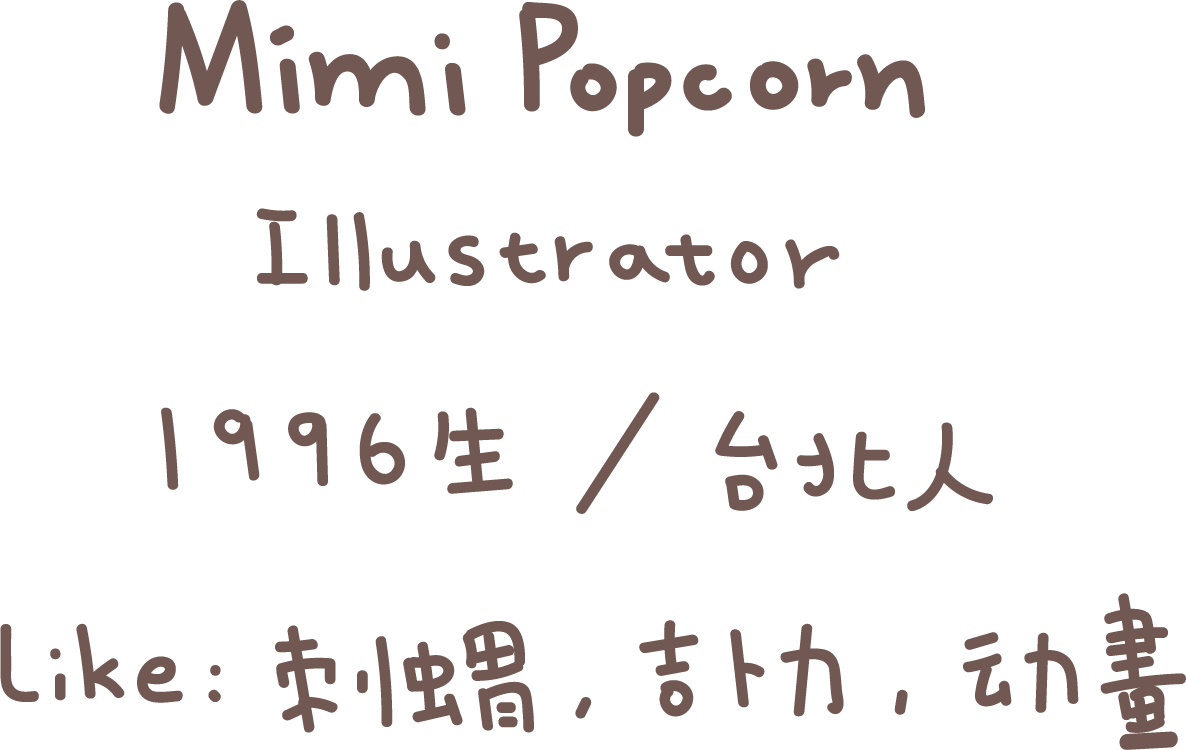 Mimi Popcorn
Illustrator
1996生 / 台北人
Like: 刺蝟, 吉卜力, 动畫